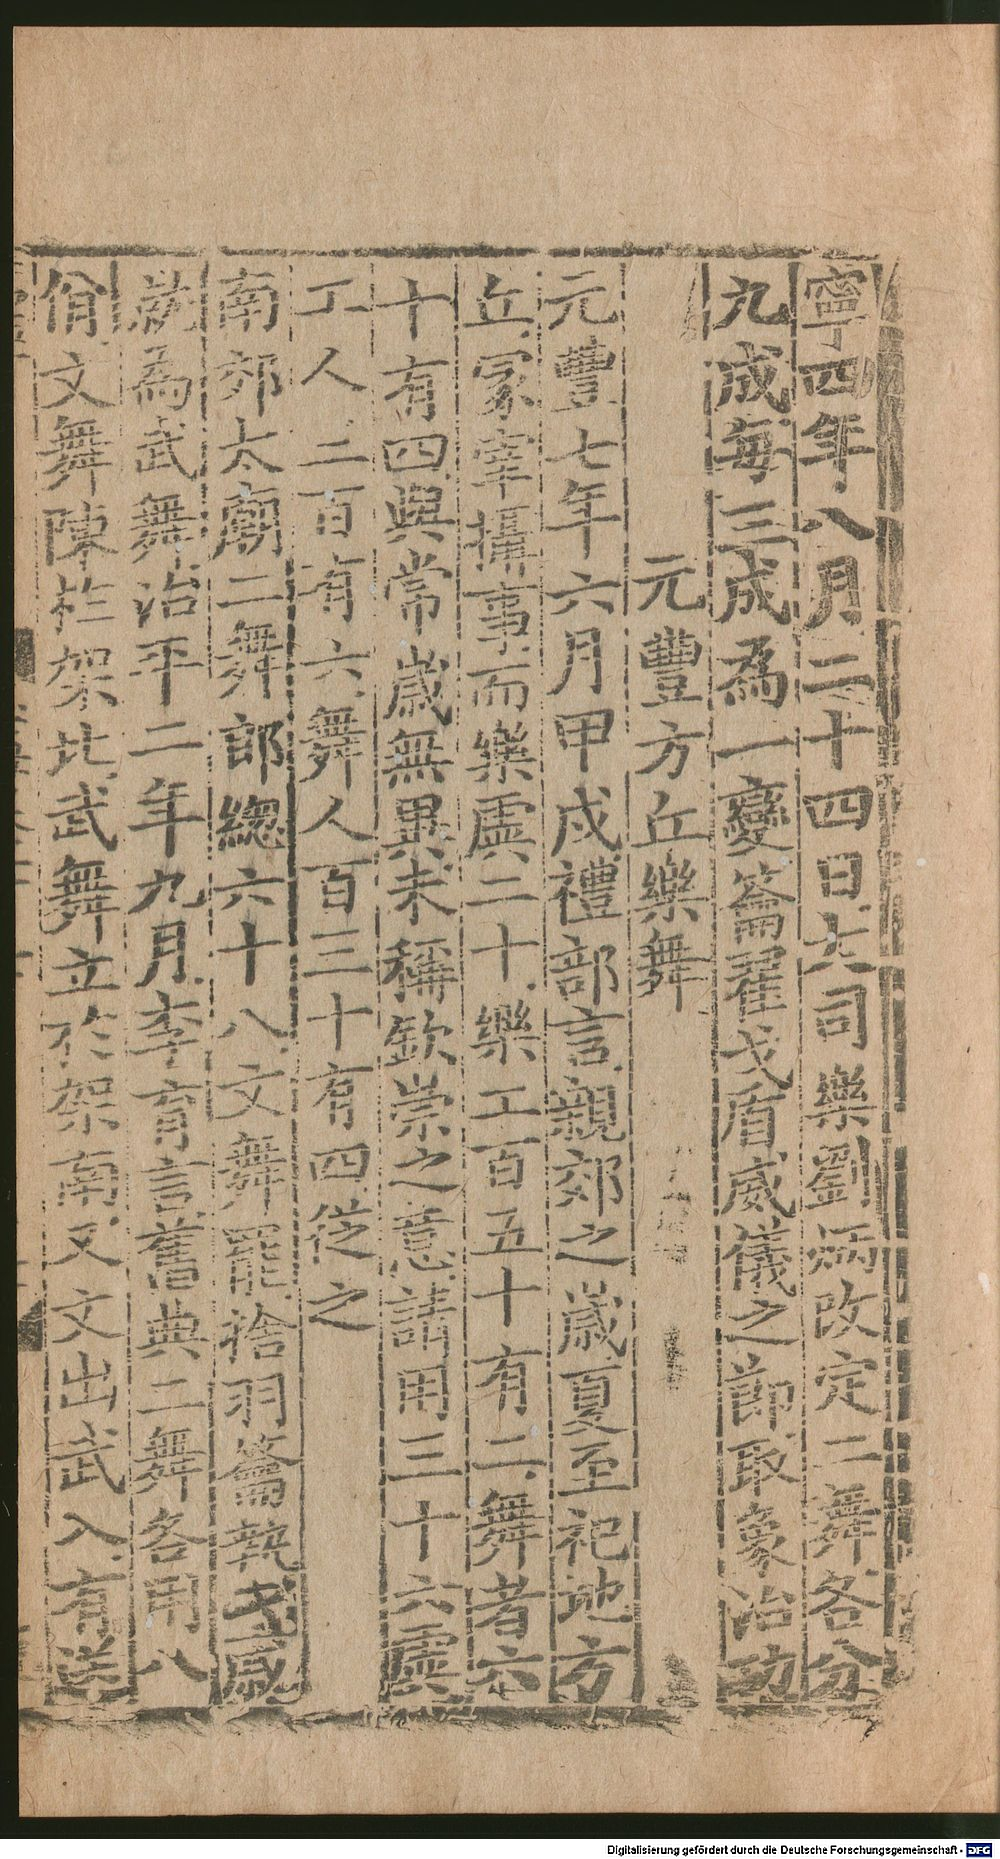 寧四年八月二十四日大司樂劉炳改定二舞各分
九成每三成爲一變籥翟戈盾威儀之節取象治功
元豐方丘樂舞
元豐七年六月甲戌禮部言親郊之歲夏至祀地方
丘冢宰攝事而樂虡二十樂工百五十有二舞者六
十有四與常歲無異未稱欽崇之意請用三十六虡
工人二百有六舞人百三十有四從之
南郊太廟二舞郎總六十八文舞罷捨羽籥執戈戚
就爲武舞治平二年九月李育言舊典二舞各用八
佾文舞陳於架北武舞立於架南又文出武入有送
Digitalisierung gefördert durch die Deutsche Forschungsgemeinschaft - DFG